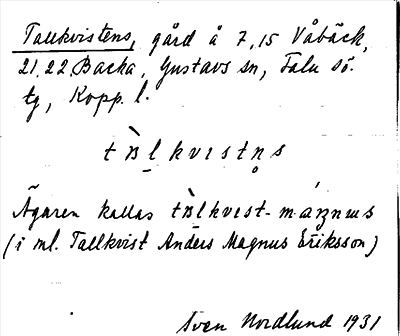 Tallkvistens, gård å 7,15 Våbäck,
21,22 Backa, Gustavs sn, Falu sö.
tg, Kopp. l.
Ägaren kallas
(i ml. Tallkvist Anders Magnus Eriksson)
Sven Nordlund 1931